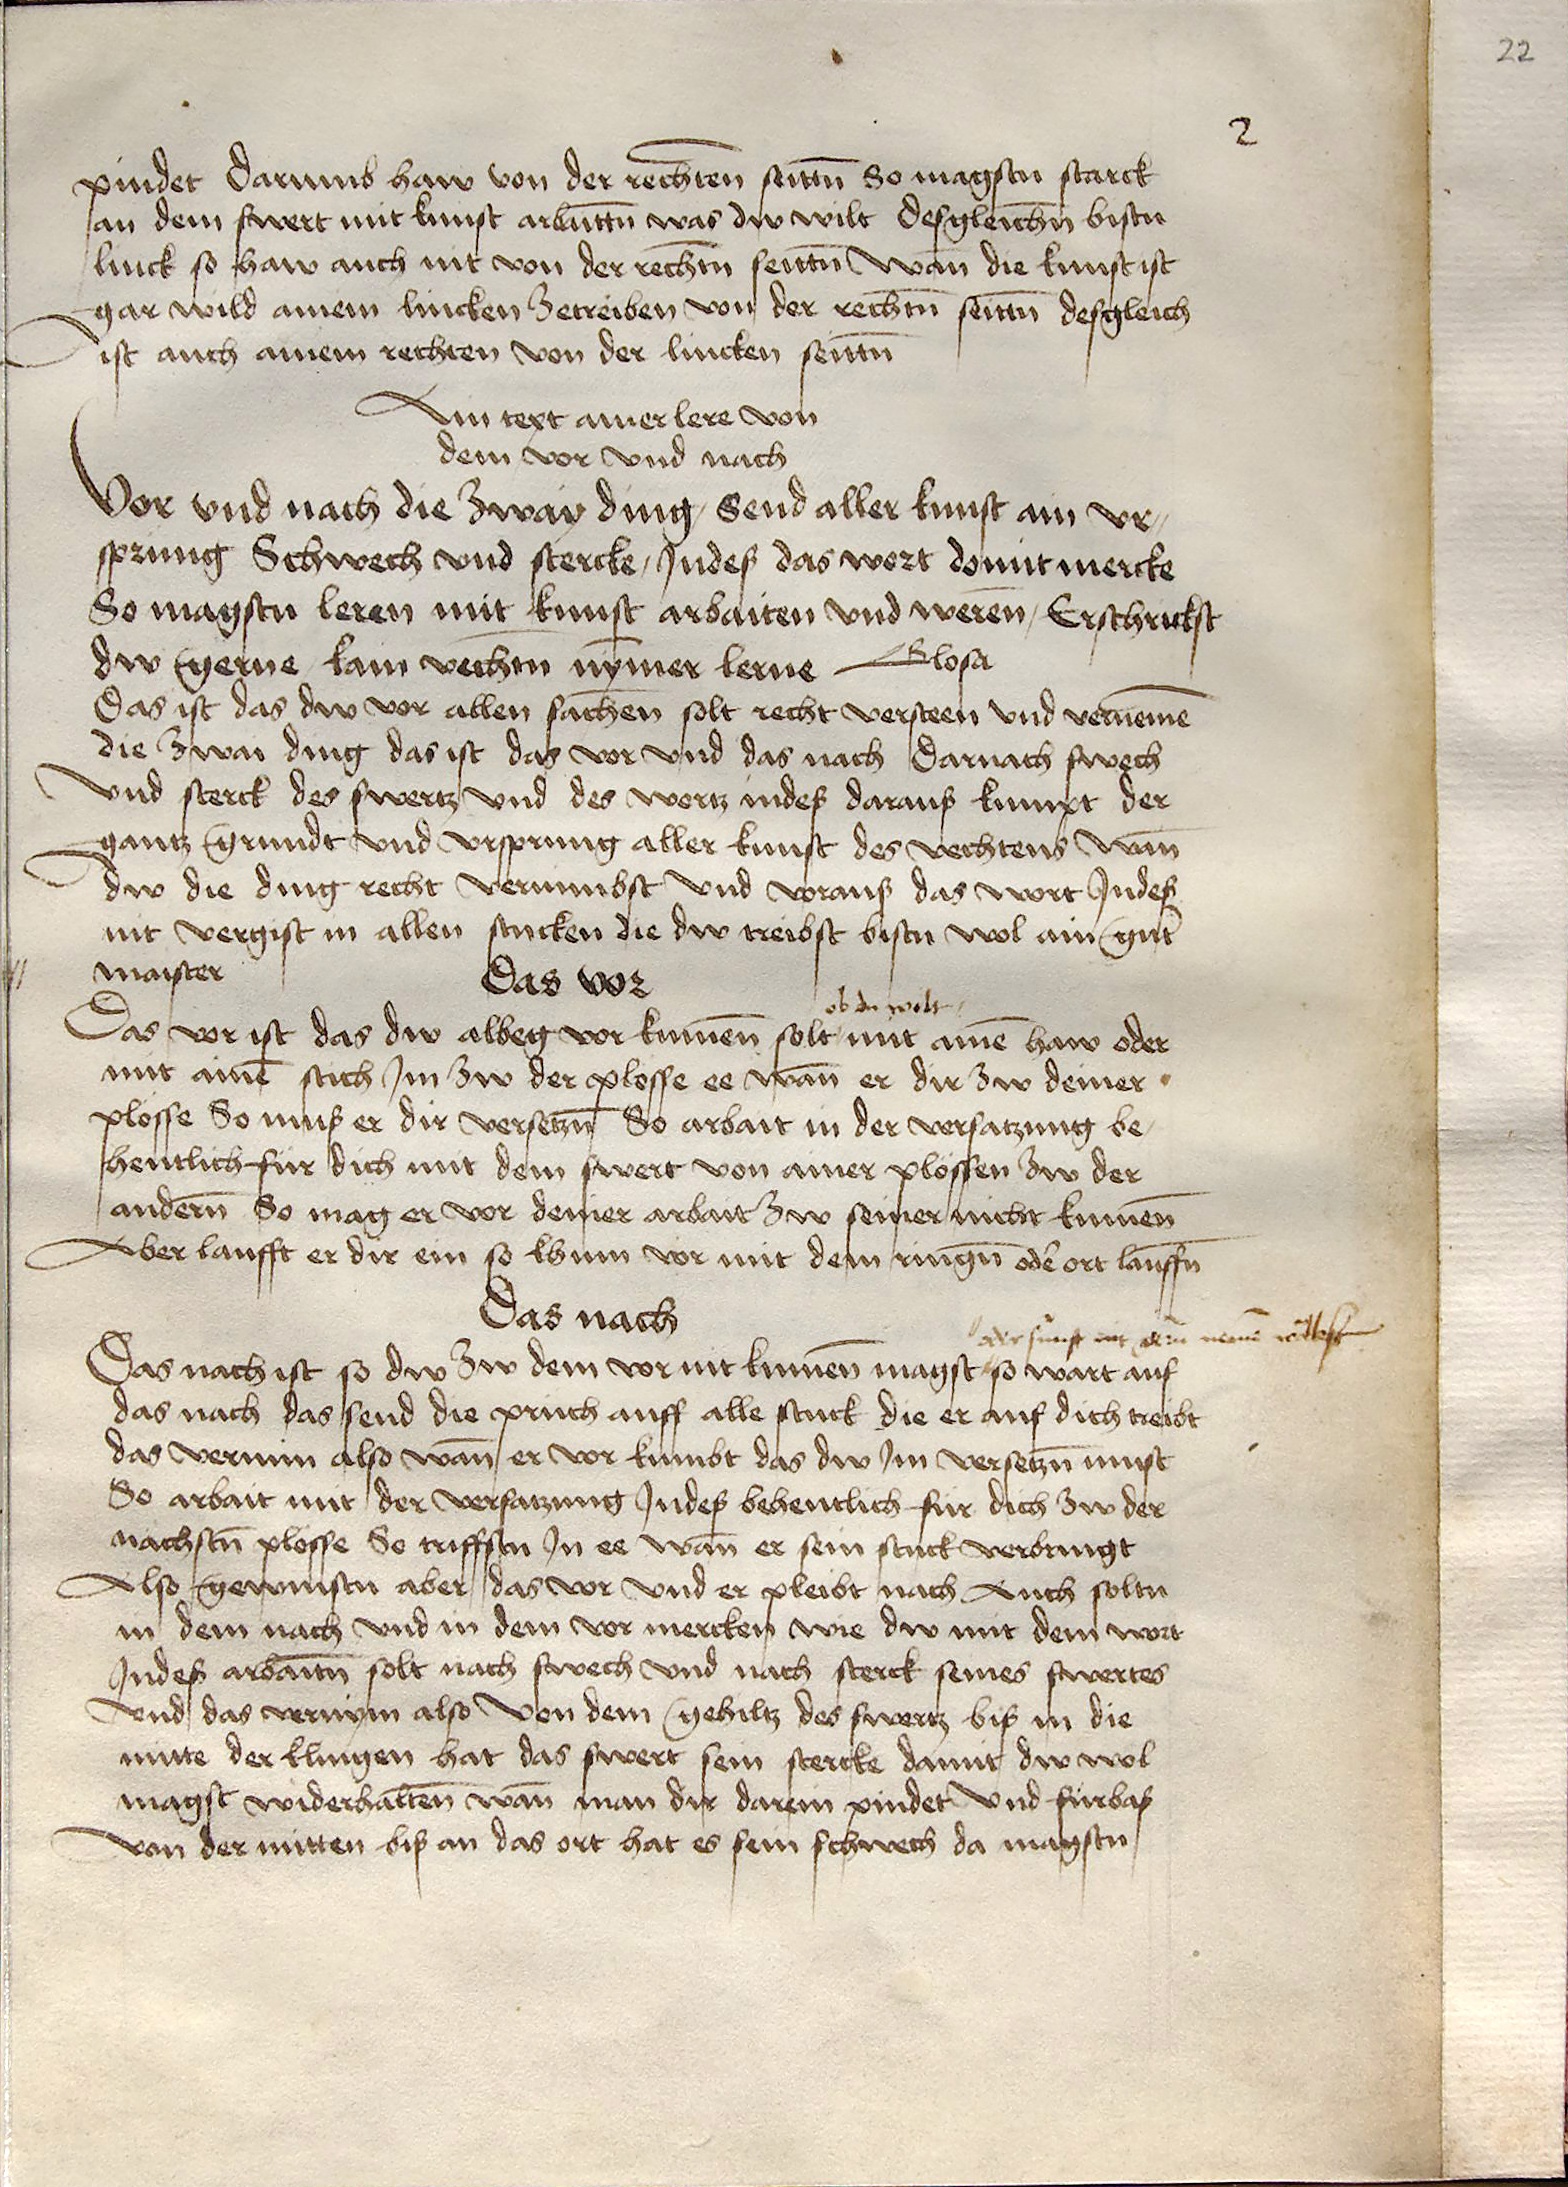 22
2
pindet Darumb haw von der rechten seittñ So magstu starck
an dem swert mit kunst arbaittñ was dw wilt Desgleichñ bistu
linck so haw auch nit von der rechtñ seittñ wañ die kunst ist
gar wild ainem lincken zetreiben von der rechtñ seittñ desgleich
ist auch ainem rechten von der lincken seittñ
Ain text ainer lere von
dem vor vnd nach
Vor vnd nach die zway ding / Send aller kunst ain vr//
sprung Schwech vnd stercke / Indeß das wort domit mercke
So magstu leren mit kunst arbaiten vnd weren̄ / Erschrickst
dw gerne / kain vechtñ nym̄er lerne Glosa
Das ist das dw vor allen sachen solt recht versteen vnd vernemē
die zwai ding das ist das vor vnd das nach Darnach swech
vnd sterck des swertz vnd des wortz indeß darauß kumpt der
gantz grundt vnd vrsprung aller kunst des vechtens wañ
dw die ding recht vernimbst vnd vorauß das wort Indeß
nit vergist in allen stucken die dw treibst bistu wol ain gut̄
maister
Das vor
ob du wilt
Das vor ist das dw albeg vor kum̄en solt / mit ainē haw oder
mit ainē stich Im zw der plosse ee wañ er dir zw deiner
plösse So muß er dir versetzñ So arbait in der versatzung be/
hentlich für dich mit dem swert von ainer plössen zw der
anderñ So mag er vor deiner arbait zw seiner nicht kum̄en
Aber laufft er dir ein so khum vor mit dem ringñ odē ort lauffñ
Das nach
Das nach ist so dw zw dem vor nit kum̄en magst so wart auf
das nach das send die prüch auff alle stuck die er auf dich treibt
das vernim also wañ er vor kumbt das dw Im versetzñ must
So arbait mit der versatzung Indeß behentlich für dich zw der
nachstñ plösse So triffstu In ee wañ er sein stuck verbringt
Also gewinstu aber das vor vnd er pleibt nach Auch soltu
in dem nach vnd in dem vor mercken wie dw mit dem wort
Indeß arbaitñ solt nach swech vnd nach sterck seines swertes
vnd das vernym also Von dem gehiltz des swertz biß in die
mitte der klingen hat das swert sein stercke damit dw wol
magst widerhalten̄ wañ man dir darein pindet Vnd fürbaß
von der mitten biß an das ort hat es sein schwech da magstu